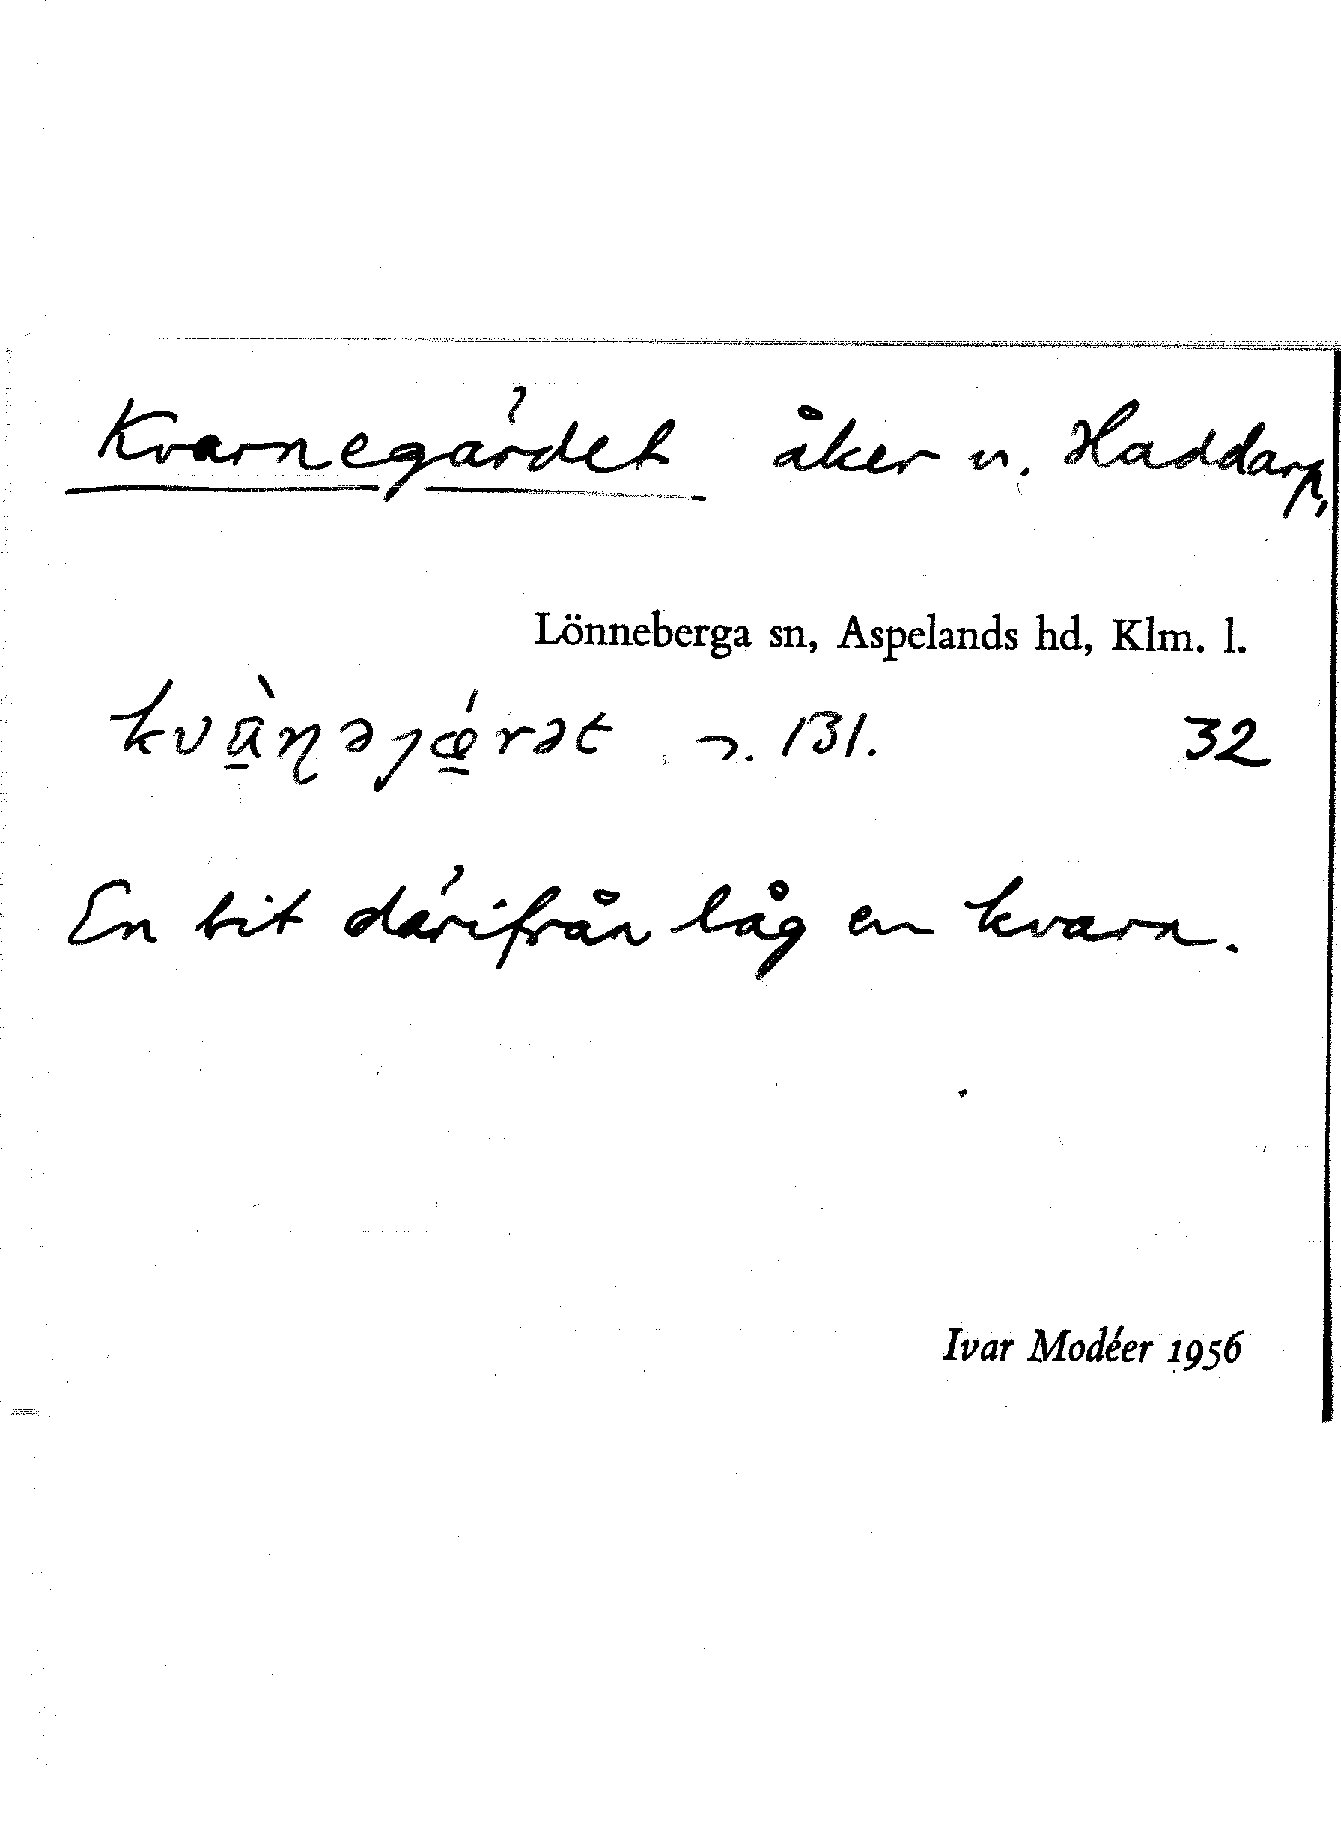 Kvarnegärdet åker v. Haddarp,
Lönneberga sn, Aspelands hd, Klm. l.
32
En bit därifrån låg en kvarn.
Ivar Modéer 1956